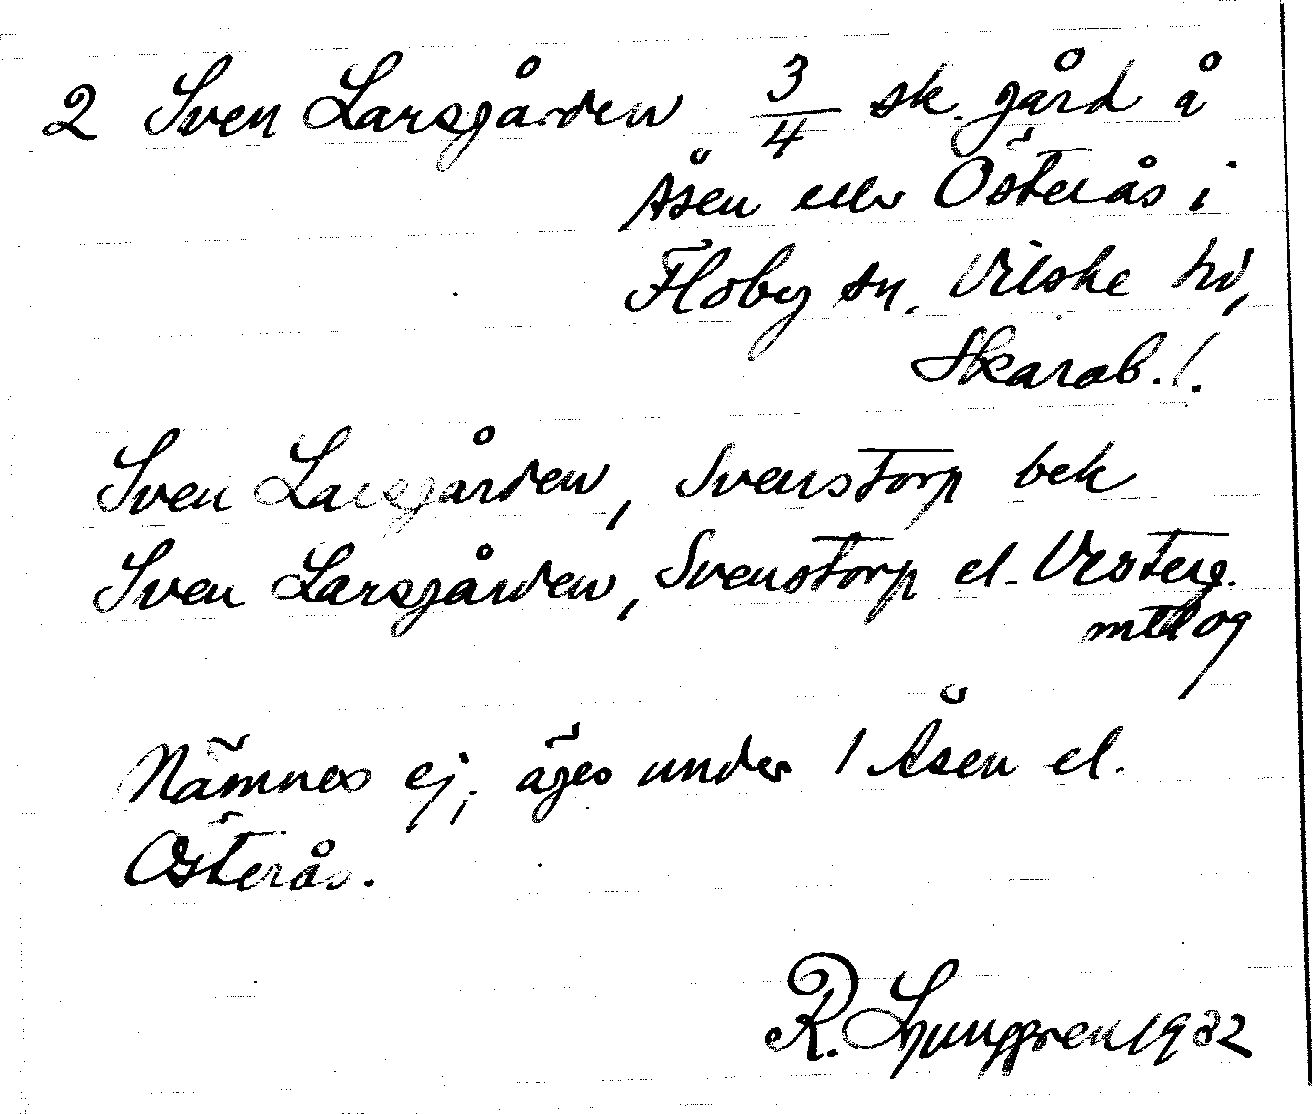 2 Sven Larsgården 3/4 sk. gård å
Åsen eller Österås i
Floby sn. Vilske hd,
Skarab. l.
Sven Larsgården, Svenstorp bek
Sven Larsgården, Svenstorp el. Vesterg.
mtl og
Nämnes ej, äges under 1 Åsen el.
Österås.
R. Ljunggren 1932